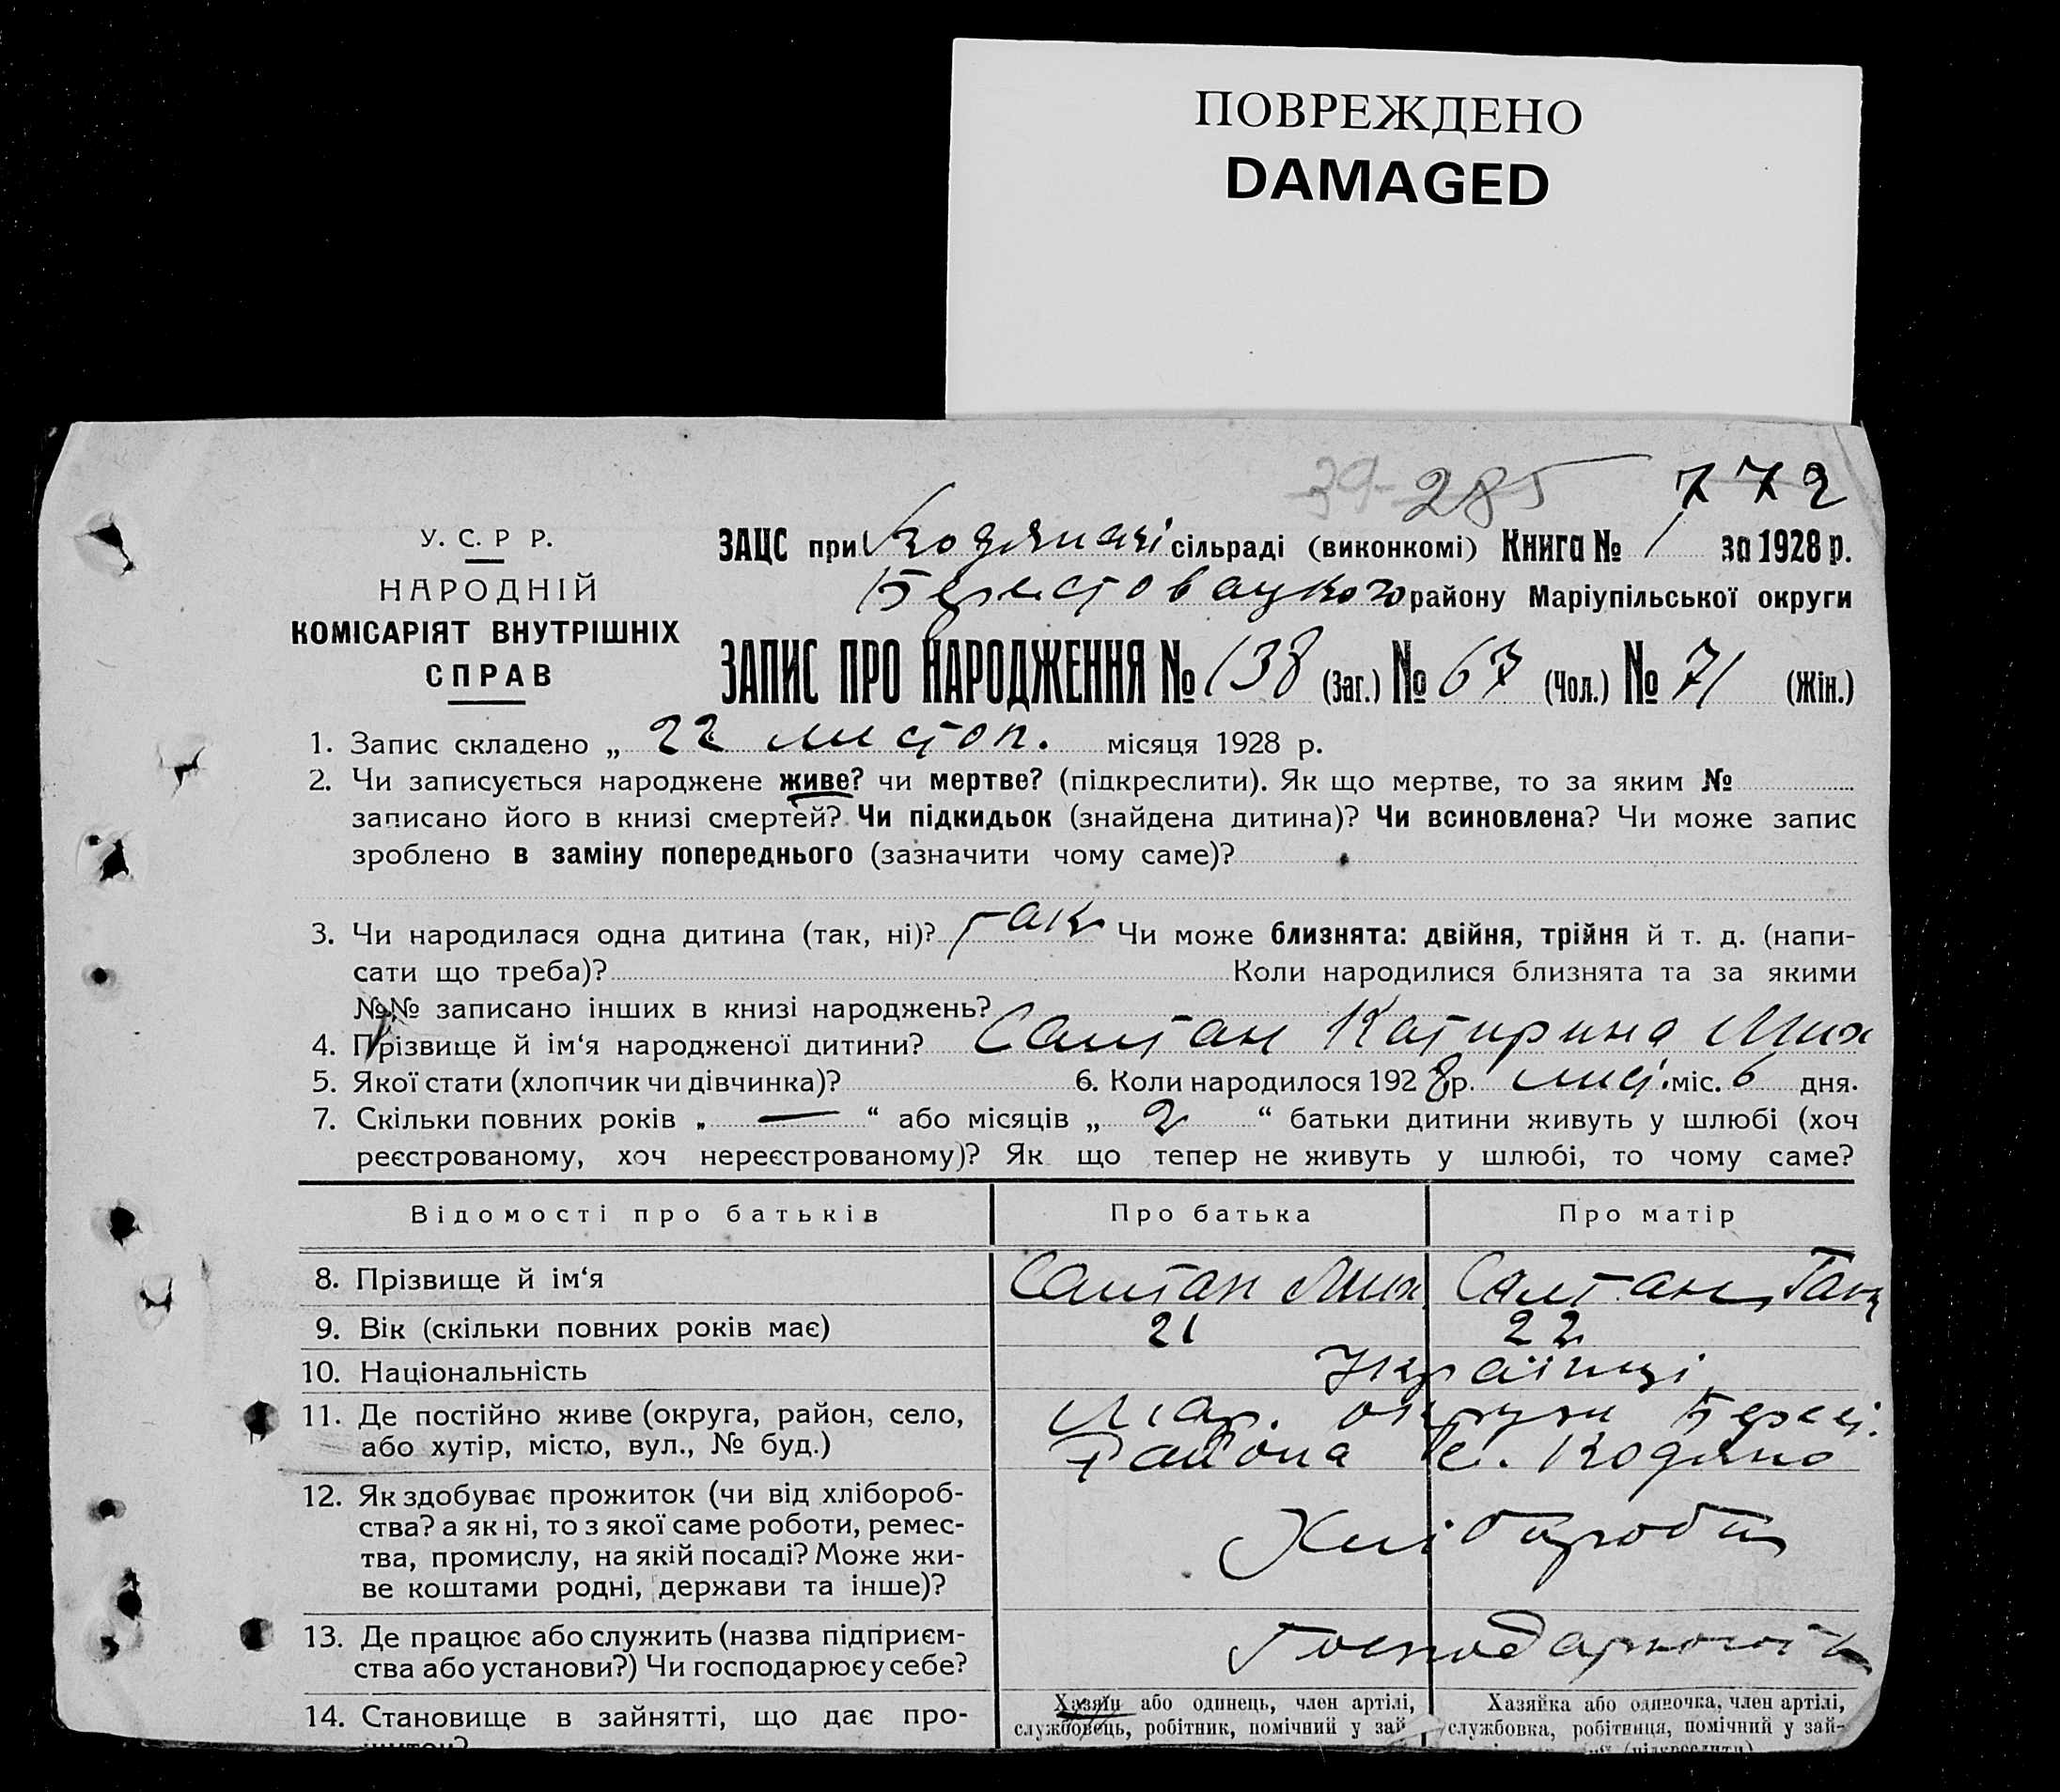 ПОВРЕЖДЕНО
DAMAGED
39-285 772
У. С. Р Р.
НАРОДНІЙ
КОМІСАРІЯТ ВНУТРІШНІХ
СПРАВ
ЗАЦС при сільраді (виконкомі) Книга № 1 за 1928 р.
району Маріупільської округи
ЗАПИС ПРО НАРОДЖЕННЯ № 138 (Заг.) № 67 (Чол.) № 71 (Жін.)
1. Запис складено „ 22 листоп. місяця 1928 р.
2. Чи записується народжене живе? чи мертве? (підкреслити). Як що мертве, то за яким №
записано його в книзі смертей? Чи підкидьок (знайдена дитина)? Чи всиновлена? Чи може запис
зроблено в заміну попереднього (зазначити чому саме)?
3. Чи народилася одна дитина (так, ні)? Так Чи може близнята: двійня, трійня й т. д. (напи-
сати що треба)? Коли народилися близнята та за якими
№№ записано інших в книзі народжень?
4. Прізвище й ім‘я народженої дитини? Салтан Катирина Мих
5. Якої стати (хлопчик чи дівчинка)? 6. Коли народилося 1928 р. лист. міс. 6 дня.
7. Скільки повних років „ — “ або місяців „ 2 “ батьки дитини живуть у шлюбі (хоч
реєстрованому, хоч нереєстрованому)? Як що тепер не живуть у шлюбі, то чому саме?
Відомості про батьків Про батька Про матір
8. Прізвище й ім‘я Салтан Мих Салтан Ганн
9. Вік (скільки повних років має) 21 22
10. Національність Українці
11. Де постійно живе (округа, район, село, Мар. округи Берест.
або хутір, місто, вул., № буд.) Района с.
12. Як здобуває прожиток (чи від хлібороб-
ства? а як ні, то з якої саме роботи, ремес-
тва, промислу, на якій посаді? Може жи-
ве коштами родні, держави та інше)?
13. Де працює або служить (назва підприєм-
ства або установи?) Чи господарює у себе?
14. Становище в зайнятті, що дає про-
Хазяїн або одинець, член артілі,
службовець, робітник, помічний у зай-
Хазяйка або одиночка, член артілі,
службовка, робітниця, помічний у зай-